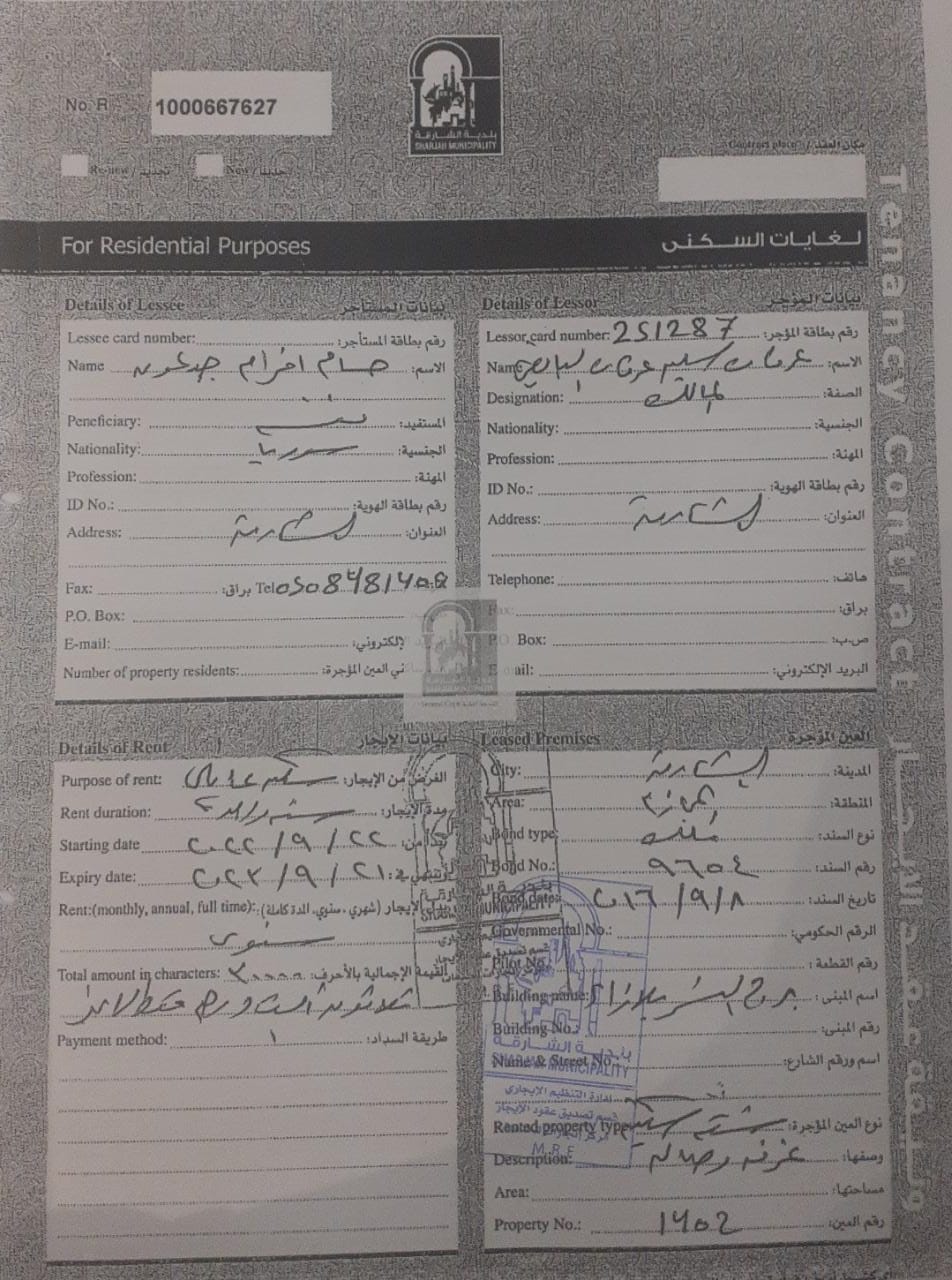 No. R 1000667627
بلدية الشارقة
SHARJAH MUNICIPALITY
Contract place / مكان العقد
Renew / تجديد
New / جديد
For Residential Purposes
لغايات السكنى
Tenancy Contract
Details of Lessee
بيانات المستأجر
Lessee card number: رقم بطاقة المستأجر:
Name حسام افرام جدعون الاسم:
Peneficiary: المستفيد:
Nationality: سوريا الجنسية:
Profession: المهنة:
ID No.: رقم بطاقة الهوية:
Address: الشارقة العنوان:
Fax: براق: Tel
P.O. Box:
E-mail: الإلكتروني:
Number of property residents: في العين المؤجرة:
Details of Lessor
بيانات المؤجر
Lessor card number: 251287 رقم بطاقة المؤجر:
Name الاسم:
Designation: المالك الصفة:
Nationality: الجنسية:
Profession: المهنة:
ID No.: رقم بطاقة الهوية:
Address: الشارقة العنوان:
Telephone: هاتف:
Fax: براق:
P.O. Box: ص.ب:
E-mail: البريد الإلكتروني:
Details of Rent
بيانات الإيجار
Purpose of rent: سكن عائلي الغرض من الإيجار:
Rent duration: سنة واحدة مدة الإيجار:
Starting date ٢٠٢٢/٩/٢٢ يبدأ من:
Expiry date: ٢٠٢٣/٩/٢١ وينتهي في:
Rent:(monthly, annual, full time): الإيجار (شهري، سنوي، المدة كاملة):
سنوي
Total amount in characters: ٣٠٠٠٠ القيمة الإجمالية بالأحرف:
ثلاثون الف درهم فقط لا غير
Payment method: ١ طريقة السداد:
Leased Premises
العين المؤجرة
City: الشارقة المدينة:
Area: المنطقة:
Bond type: نوع السند:
Bond No.: ٩٦٥٤ رقم السند:
Bond date: ٢٠١٦/٩/٨ تاريخ السند:
Governmental No.: الرقم الحكومي:
Pilot No.: رقم القطعة:
Building name: برج اسم المبنى:
Building No.: رقم المبنى:
Name & Street No. اسم ورقم الشارع:
Rented property type نوع العين المؤجرة:
Description: غرفة وصالة وصفها:
Area: مساحتها:
Property No.: 1402 رقم العين:
بلدية الشارقة
SHARJAH MUNICIPALITY
إدارة التنظيم الإيجاري
قسم تصديق عقود الإيجار
M.R.E